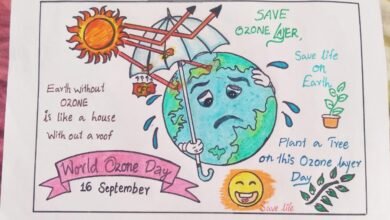 SAVE
OZONE LAYER,
Save life
on
Earth
Earth without
OZONE
is like a house
With out a roof
Plant a Tree
on this Ozone layer
Day
World Ozone Day
16 September
Save life